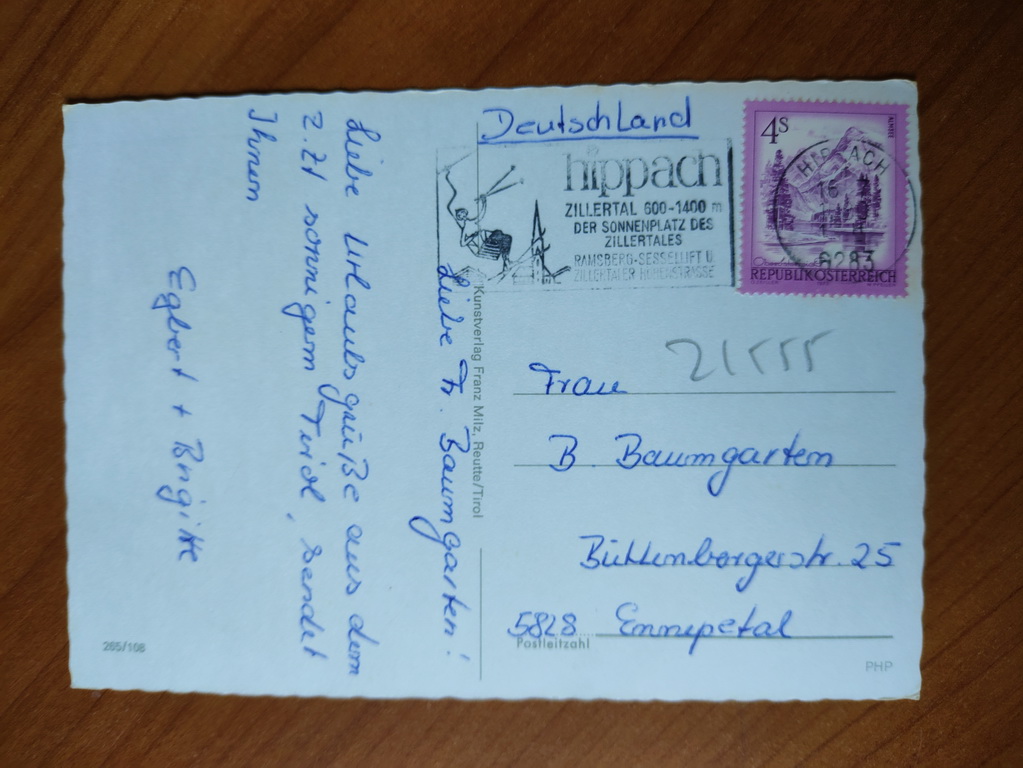 Liebe Fr. Baumgarten!
Liebe Urlaubsgrüße aus dem
z. Zt sonnigem Tirol, sendet
Ihnen
Egbert + Brigitte
Deutschland
hippach
ZILLERTAL 600-1400 m
DER SONNENPLATZ DES
ZILLERTALES
RAMSBERG-SESSELLIFT U.
ZILLERTALER HÖHENSTRASSE
4S
ALMSEE
HIPPACH
16
6283
REPUBLIK ÖSTERREICH
Kunstverlag Franz Milz, Reutte/Tirol
21555
Frau
B. Baumgarten
25
5828 Ennepetal
Postleitzahl
265/108
PHP